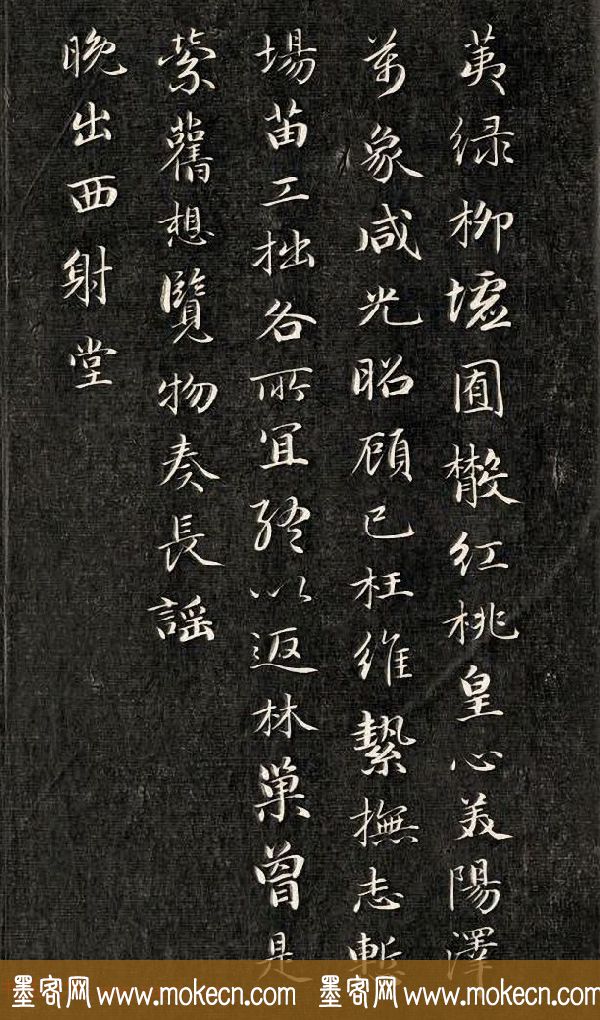 荑绿柳墟囿散红桃皇心美陽澤
萬象咸光昭顾己枉維縶撫志慙
場苗工拙各所宜終以返林巢曾是
縈舊想覽物奏長謡
晚出西射堂
墨客网 www.mokecn.com 墨客网 www.mokecn.com